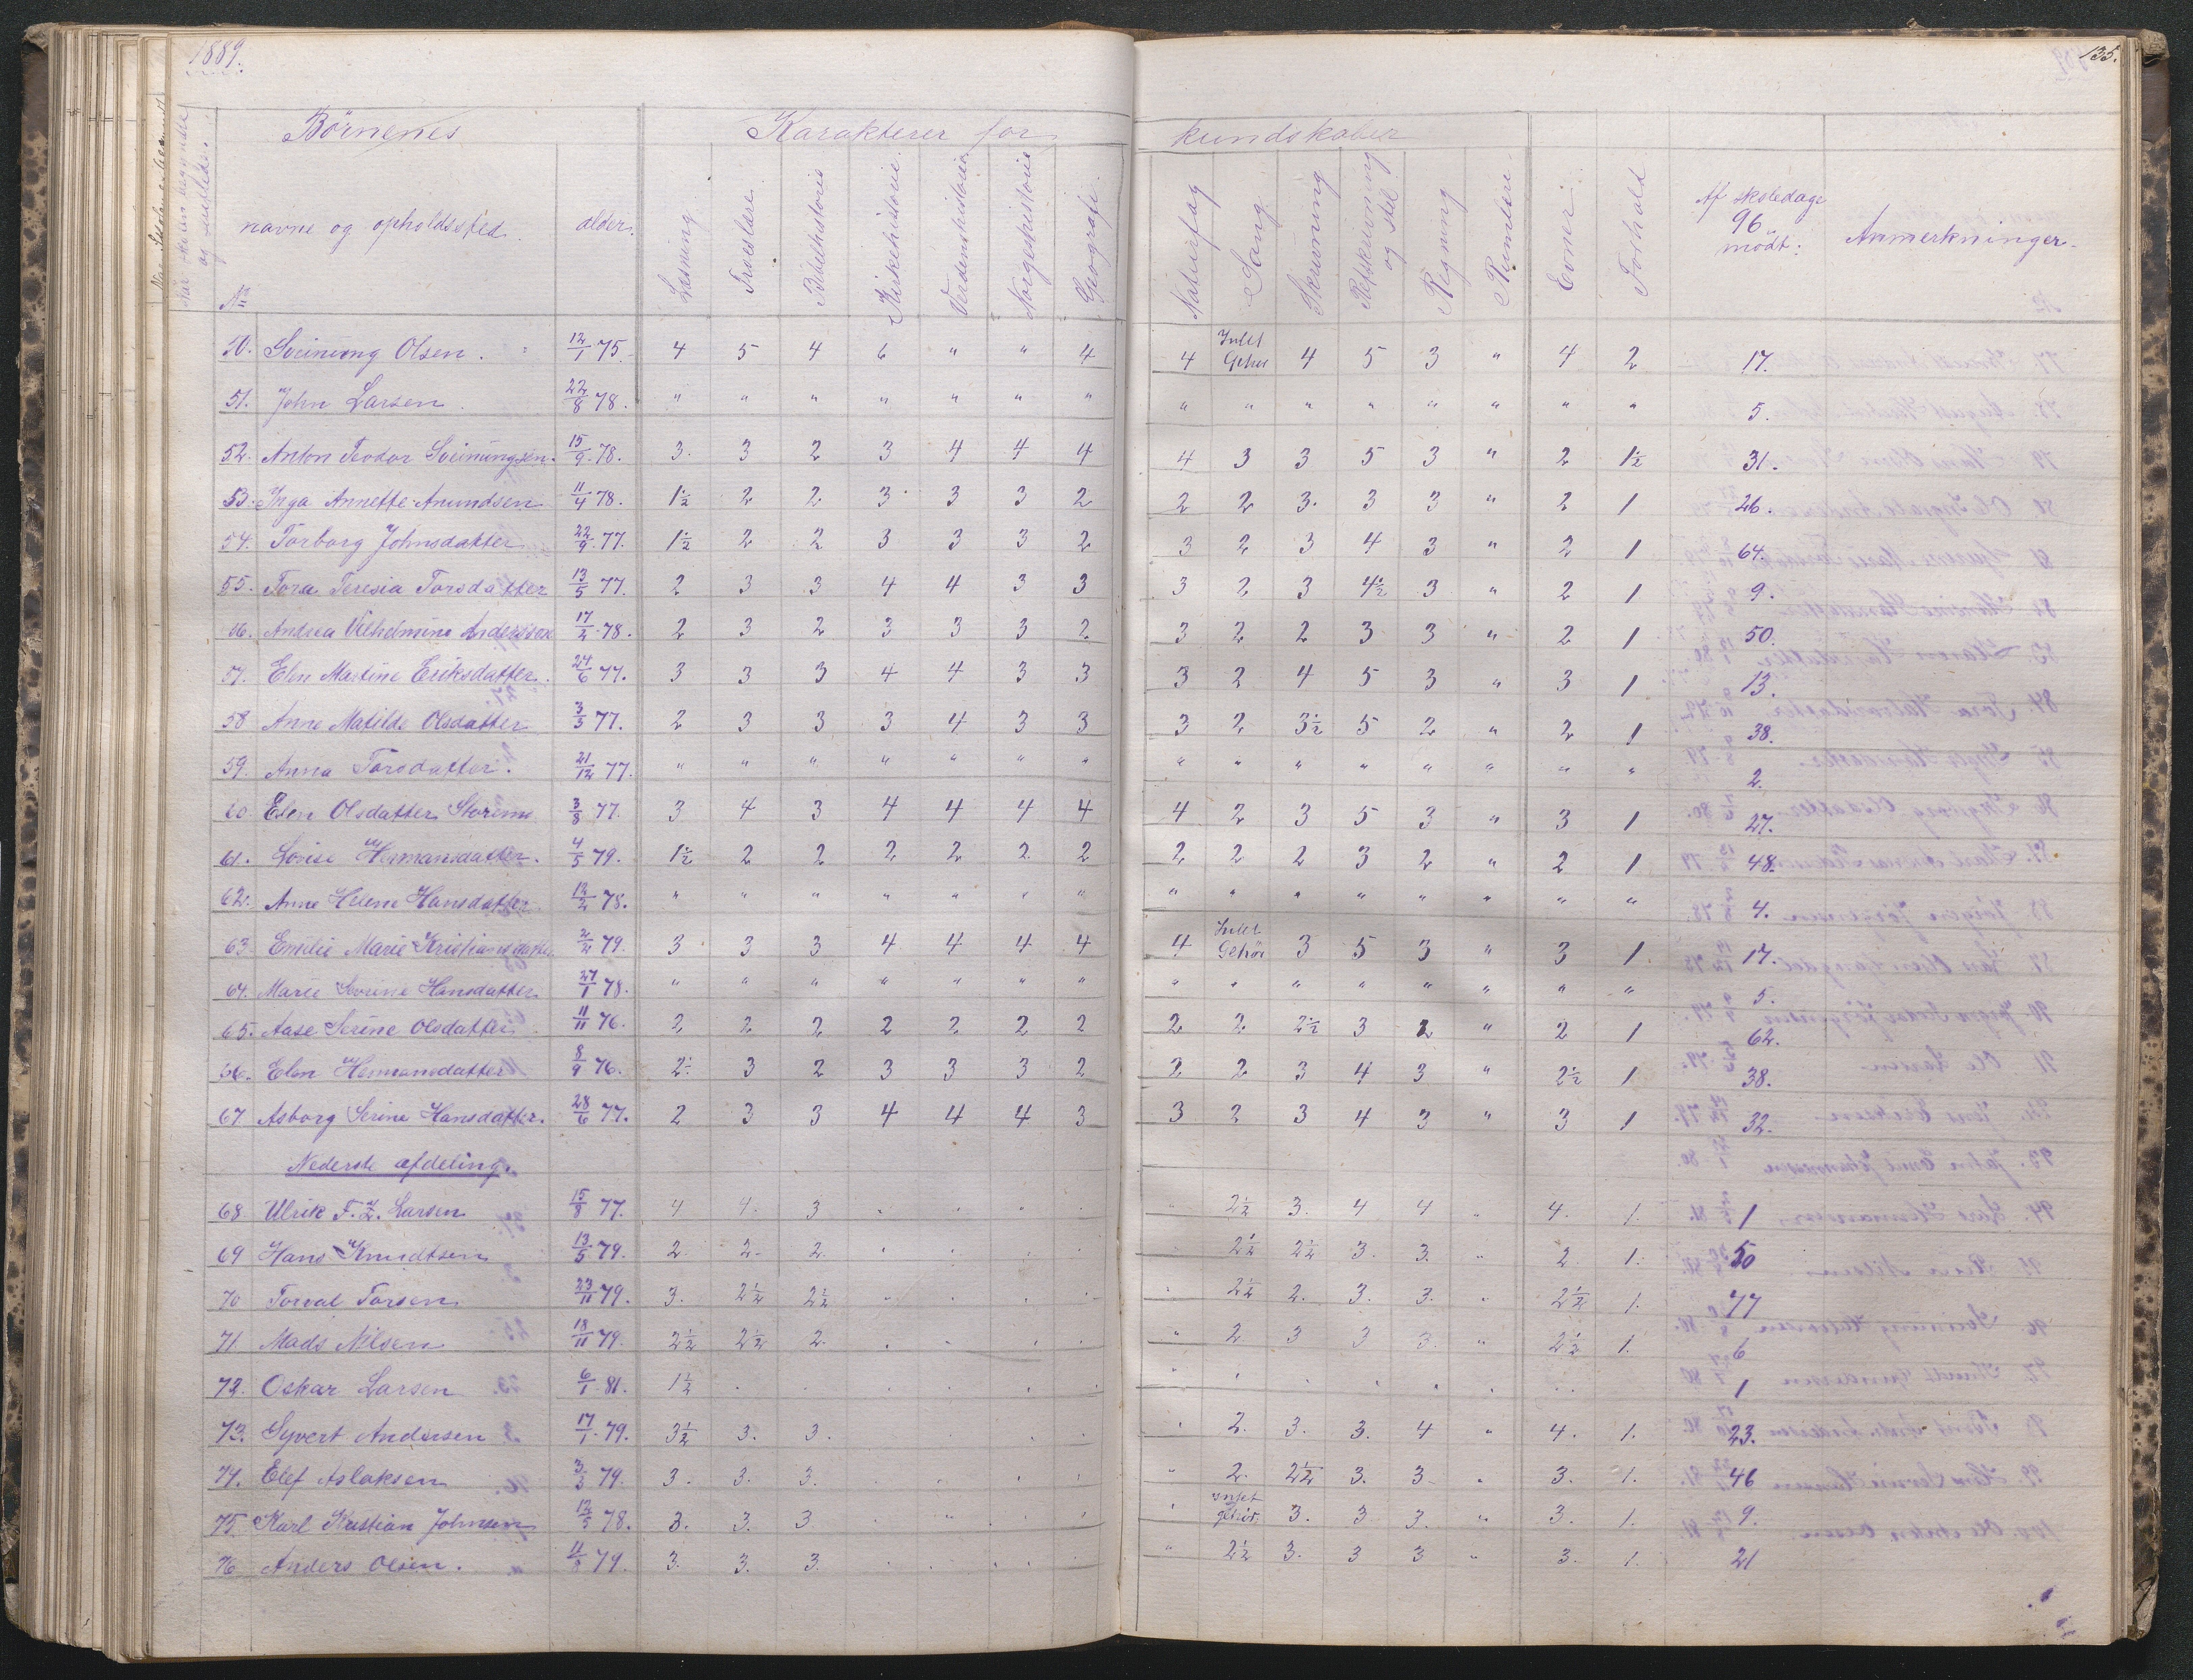 1889.
135.
Börnenes
Karakterer for
kundskaber
№
navne og opholdssted.
alder.
Læsning.
Troeslære.
Bibelhistorie
Kirkehistorie.
Verdenshistorie
Norgeshistorie
Geografi.
Naturfag
Sang.
Skrivning
Retskrivning og stil
Regning
Evner.
Forhold
Af skoledage 96 mödt:
Anmerkninger.
50. Sveinung Olsen. 12/1 75. 4 5 4 6 " " 4 4 Intet Gehör 4 5 3 " 4 2 17.
51. John Larsen. 22/8 78. " " " " " " " " " " " " " " " 5.
52. Anton Teodor Sveinungsen. 15/9 78. 3. 3 2 3 4 4 4 4 3 3 5 3 " 2 1½ 31.
53. Inga Annette Anundsen 11/4 78. 1½ 2 2 3 3 3 2 2 2 3. 3 3 " 2 1 26.
54. Torborg Johnsdatter 22/9 77. 1½ 2 2 3 3 3 2 3 2 3 4 3 " 2 1 64.
55. Tora Teresia Torsdatter 13/5 77. 2 3 3 4 4 3 3 3 2 3 4½ 3 " 2 1 9.
56. Andrea Vilhelmine Anderssen 17/2 78. 2 3 2 3 3 3 2 3 2 2 3 3 " 2 1 50.
57. Elen Martine Eriksdatter. 24/6 77. 3 3 3 4 4 3 3 3 2 4 5 3 " 3 1 13.
58 Anne Matilde Olsdatter 3/3 77. 2 3 3 3 4 3 3 3 2 3½ 5 2 " 2 1 38.
59. Anna Torsdatter. 21/12 77. " " " " " " " " " " " " " " " 2.
60. Elen Olsdatter Storemo 3/8 77. 3 4 3 4 4 4 4 4 2 3 5 3 " 3 1 27.
61. Lovise Hermansdatter. 4/5 79. 1½ 2 2 2 2 2 2 2 2 2 3 2 " 2 1 48.
62. Anne Helene Hansdatter 12/2 78. " " " " " " " " " " " " " " " 4.
63. Emilie Marie Kristiansdatter 2/2 79. 3 3 3 4 4 4 4 4 Intet Gehör 3 5 3 " 3 1 17.
64. Marie Severine Hansdatter 27/1 78. " " " " " " " " " " " " " " " 5.
65. Aase Serine Olsdatter 11/11 76. 2 2 2 2 2 2 2 2 2 2½ 3 2 " 2 1 62.
66. Elen Hermansdatter 8/9 76. 2½ 3 2 3 3 3 2 2 2 3 4 3 " 2½ 1 38.
67 Asborg Serine Hansdatter. 28/6 77. 2 3 3 4 4 4 3 3 2 3 4 3 " 3 1 32.
Nederste afdeling.
68 Ulrik F. Z. Larsen 15/8 77. 4 4. 3 " 2½ 3. 4 4 " 4. 1. 1
69 Hans Knudtsen 13/5 79. 2. 2. 2. 2½ 2½ 3. 3. " 2. 1. 50
70 Torval Torsen 23/11 79. 3. 2½ 2½ 2½ 2. 3. 3. " 2½ 1. 77
71. Mads Nilsen 18/11 79. 2½ 2½ 2. " 2 3 3 3. " 2½ 1. 6
72. Oskar Larsen 6/1 81. 1½ 1
73. Syvert Andersen 17/1 79. 3½ 3. 3. 2. 3. 3. 4 " 4. 1. 23.
74. Elef Aslaksen 3/3 79. 3. 3. 3. " 2. 2½ 3. 3 " 3. 1. 46
75. Karl Kristian Johnsen 12/5 78. 3. 3. 3 intet gehör. 3. 3 3. " 3. 1. 9.
76 Anders Olsen. 11/8 79. 3. 3. 3. " 2½ 3. 3 3 " 3. 1. 21